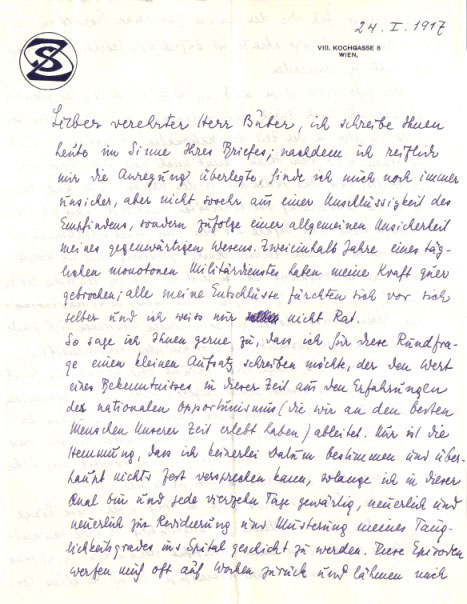 SZ
24. I. 1917
VIII. KOCHGASSE 8
WIEN,
Lieber verehrter Herr Buber, ich schreibe Ihnen
heute im Sinne Ihres Briefes; nachdem ich reiflich
mir die Anregung überlegte, finde ich mich noch immer
unsicher, aber nicht sosehr aus einer Unschlüssigkeit des
Empfindens, sondern zufolge einer allgemeinen Unsicherheit
meines gegenwärtigen Wesens. Zweieinhalb Jahre eines täg-
lichen monotonen Militärdienstes haben meine Kraft quer
gebrochen; alle meine Entschlüsse fürchten sich vor sich
selber und ich weiss mir nicht Rat.
So sage ich Ihnen gerne zu, dass ich für diese Rundfra-
ge einen kleinen Aufsatz schreiben möchte, der den Wert
eines Bekenntnisses in dieser Zeit aus den Erfahrungen
des nationalen Opportunismus (die wir an den besten
Menschen unserer Zeit erlebt haben) ableitet. Nur ist die
Hemmung, dass ich keinerlei Datum bestimmen und über-
haupt nichts fest versprechen kann, solange ich in dieser
Qual bin und jede vierzehn Tage gewärtig, neuerlich und
neuerlich zur Revidierung und Musterung meines Taug-
lichkeitsgrades ins Spital geschickt zu werden. Diese Episoden
werfen mich oft auf Wochen zurück und lähmen noch